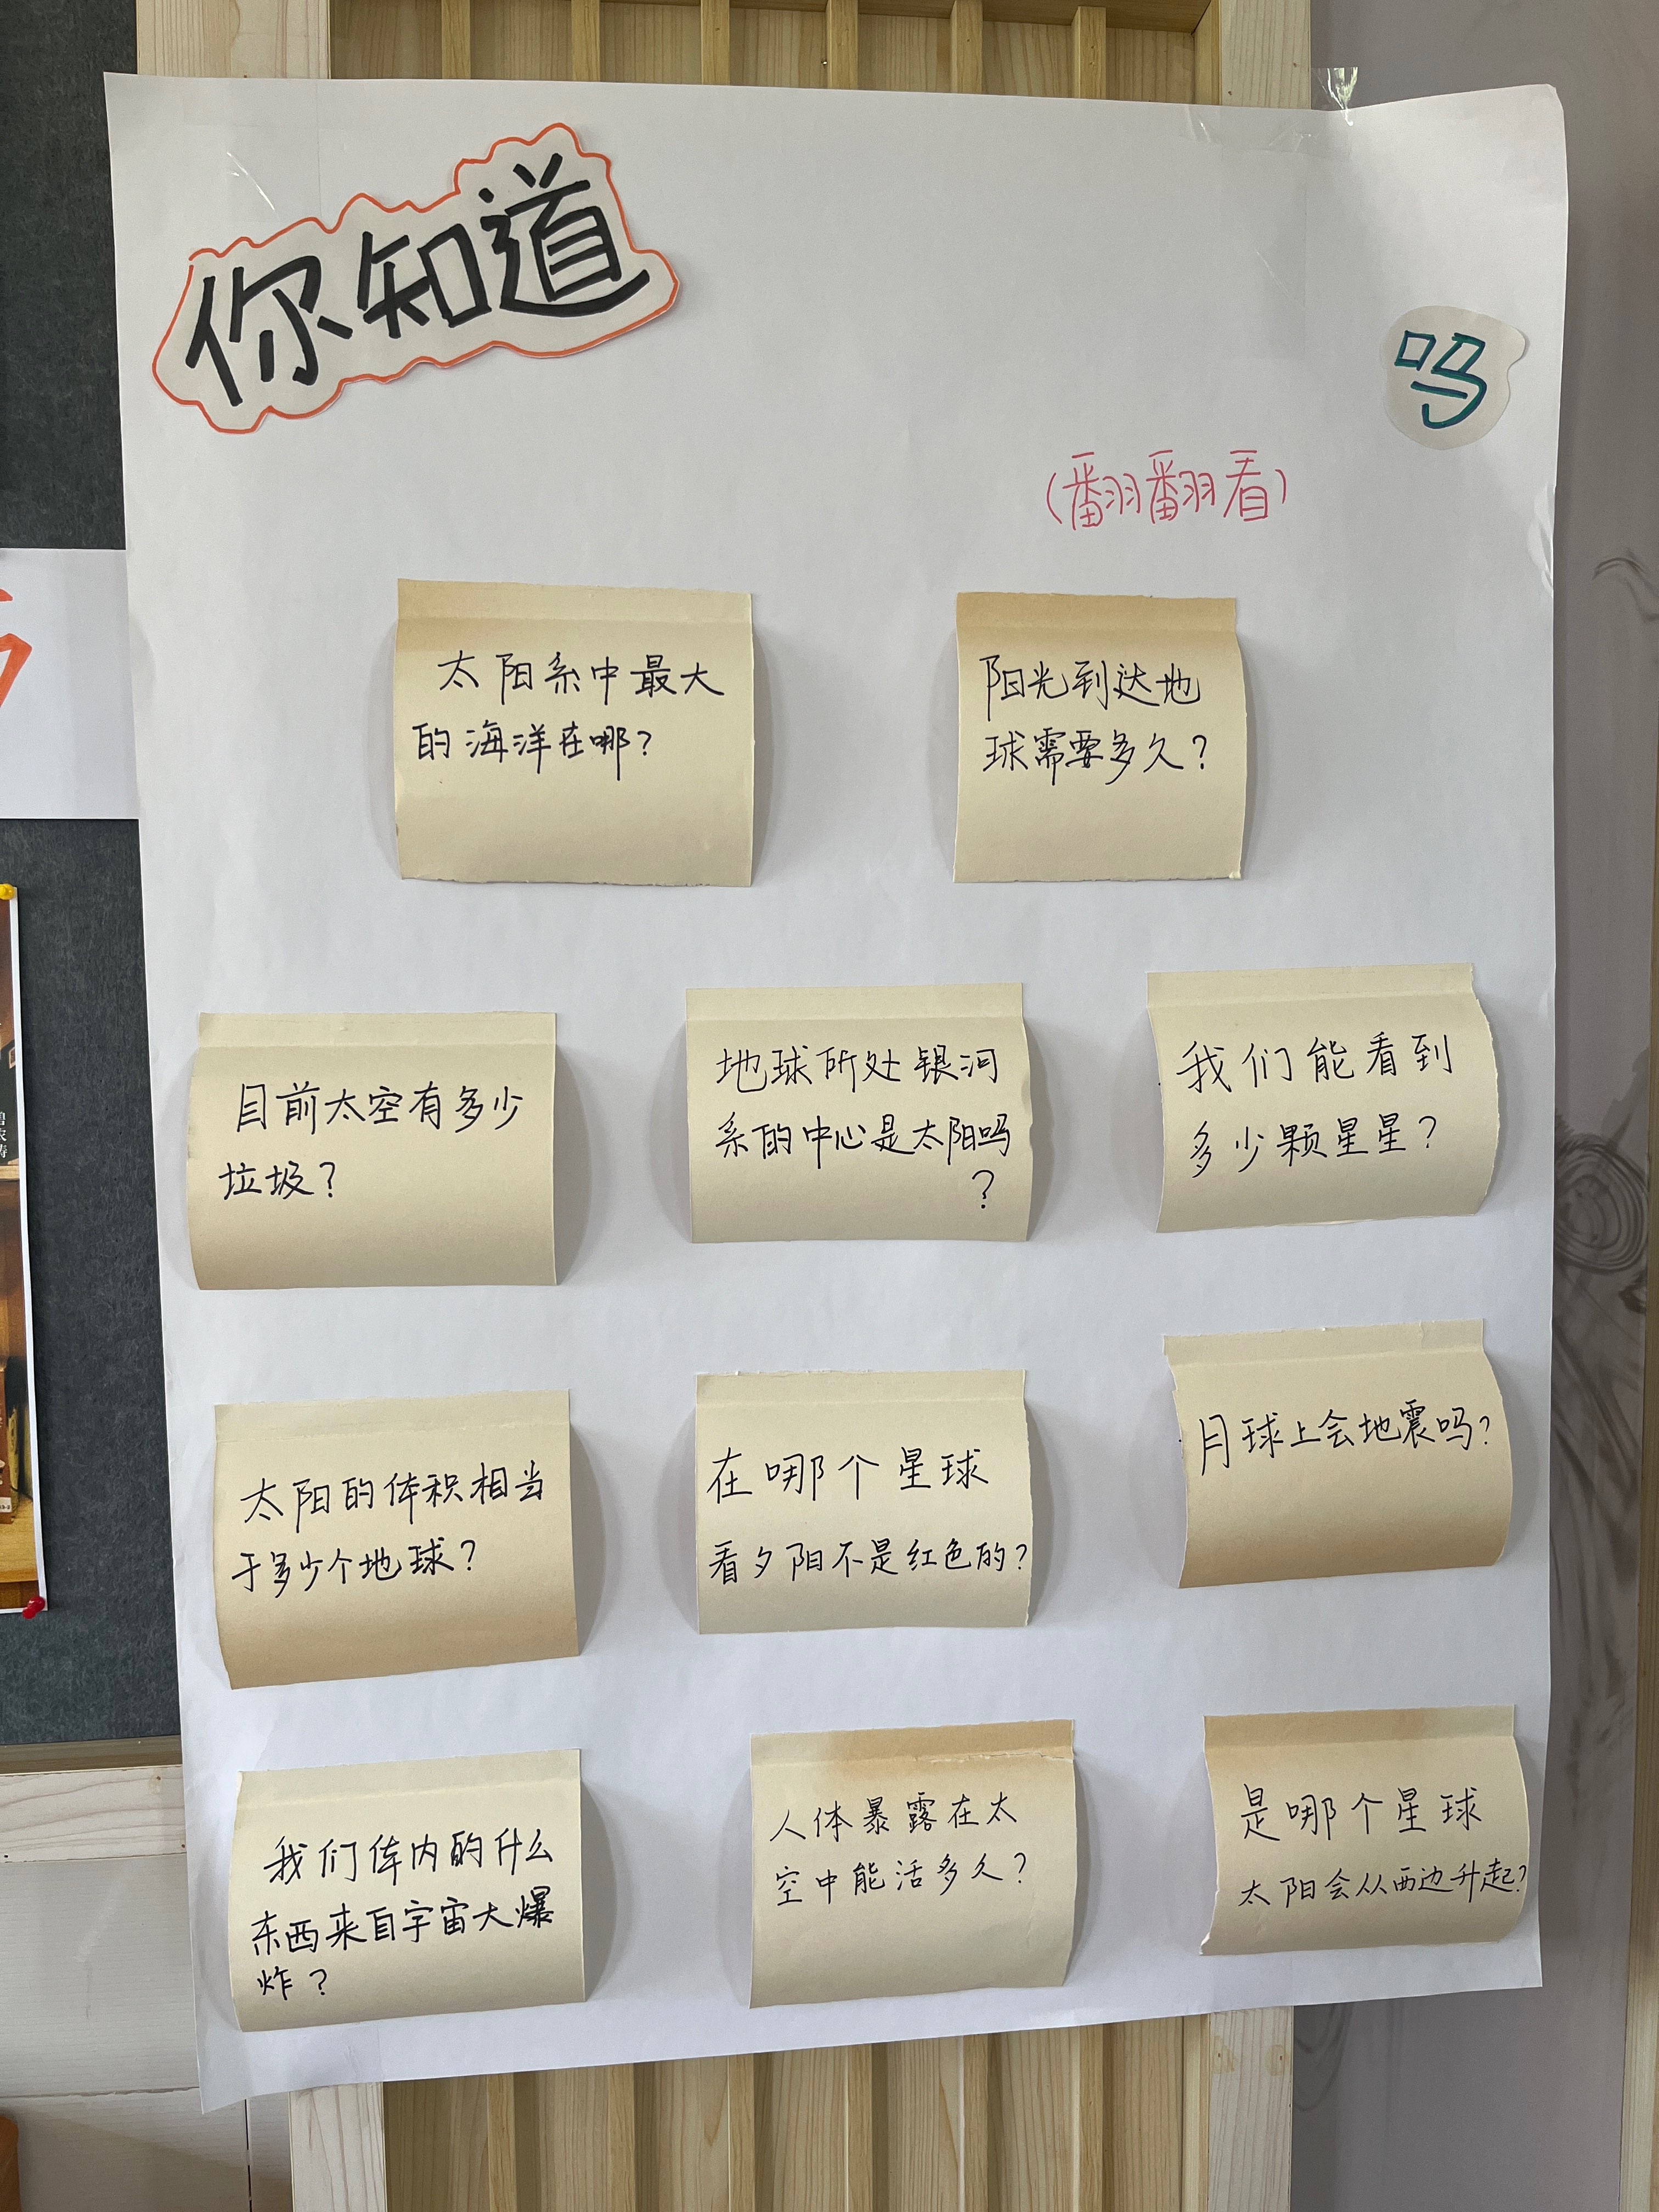 你知道
吗
(翻翻看)
太阳系中最大
的海洋在哪?
阳光到达地
球需要多久?
目前太空有多少
垃圾?
地球所处银河
系的中心是太阳吗
?
我们能看到
多少颗星星?
太阳的体积相当
于多少个地球?
在哪个星球
看夕阳不是红色的?
月球上会地震吗?
我们体内的什么
东西来自宇宙大爆
炸?
人体暴露在太
空中能活多久?
是哪个星球
太阳会从西边升起?